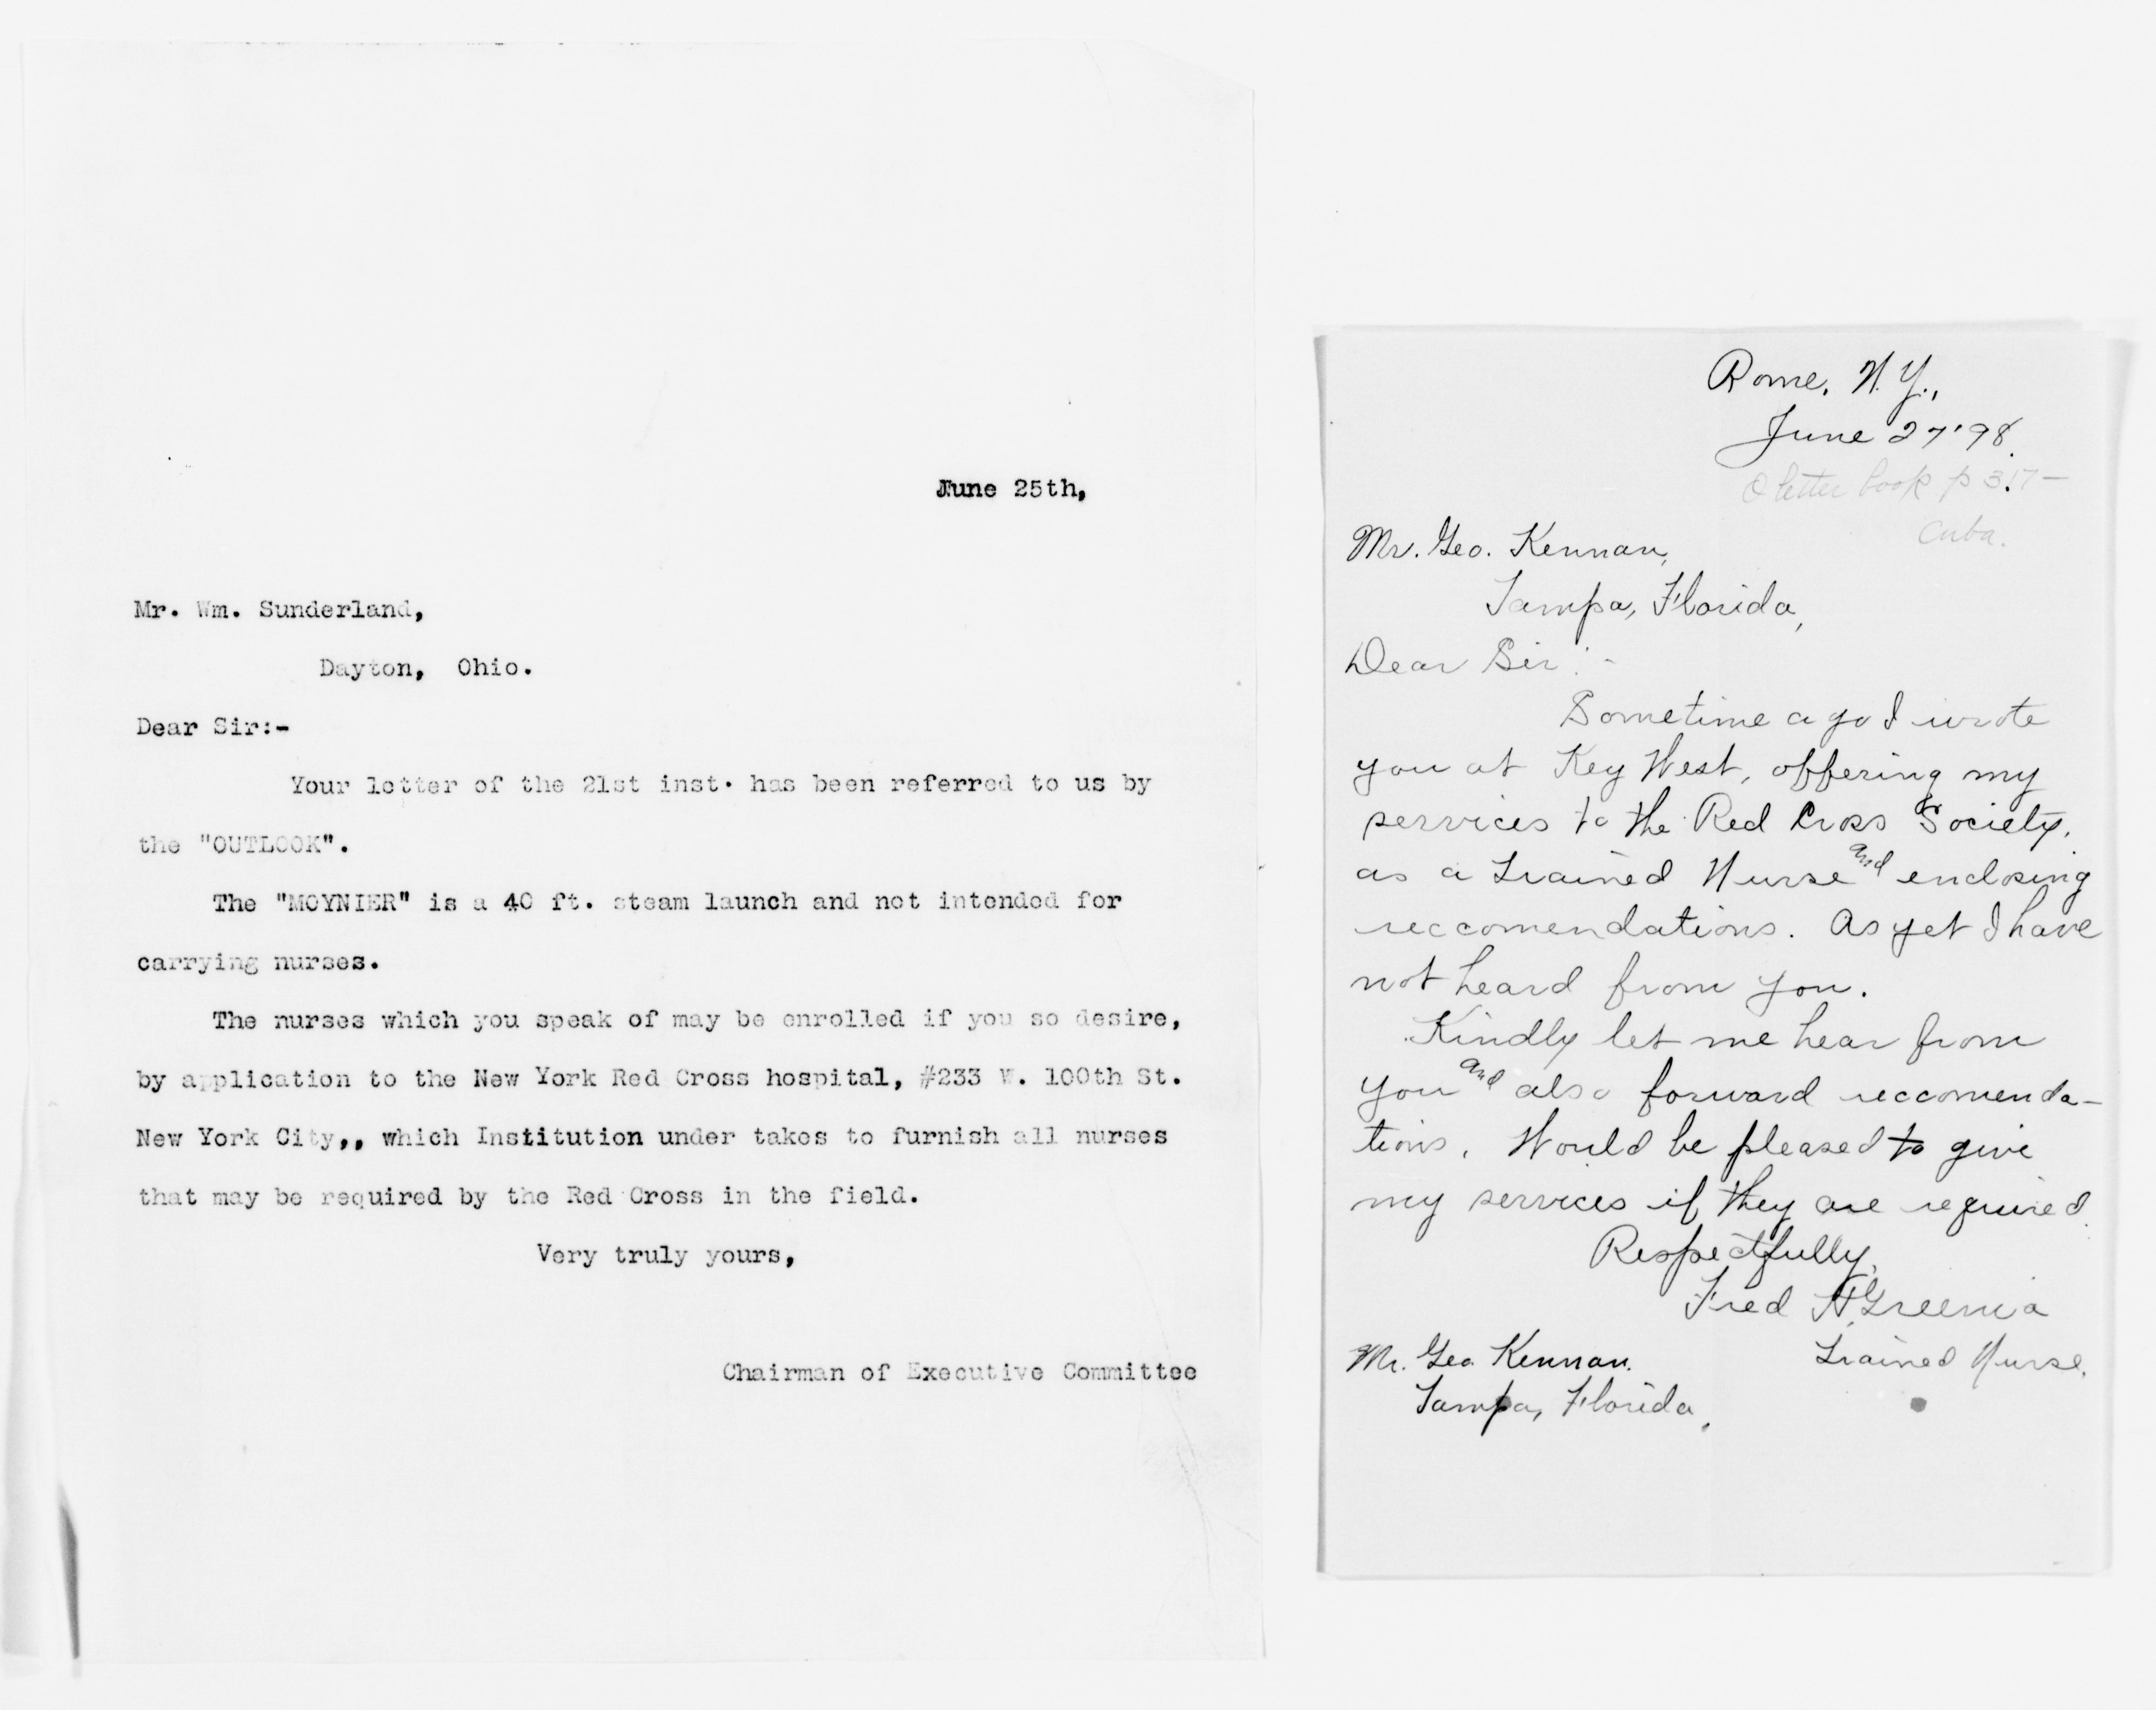 June 25th,
Mr. Wm. Sunderland,
Dayton, Ohio.
Dear Sir:-
Your letter of the 21st inst. has been referred to us by
the "OUTLOOK".
The "MOYNIER" is a 40 ft. steam launch and not intended for
carrying nurses.
The nurses which you speak of may be enrolled if you so desire,
by application to the New York Red Cross hospital, #233 W. 100th St.
New York City,, which Institution under takes to furnish all nurses
that may be required by the Red Cross in the field.
Very truly yours,
Chairman of Executive Committee
Rome, N.Y.,
June 27'98.
letter book p 317-
Cuba.
Mr. Geo. Kennan,
Tampa, Florida,
Dear Sir:-
Sometime ago I wrote
you at Key West, offering my
services to the Red Cross Society,
as a Trained Nurse and enclosing
reccomendations. As yet I have
not heard from you.
Kindly let me hear from
you and also forward reccomenda-
tions. Would be pleased to give
my services if they are required.
Respectfully,
Fred A. Greenia
Trained Nurse.
Mr. Geo. Kennan.
Tampa, Florida,